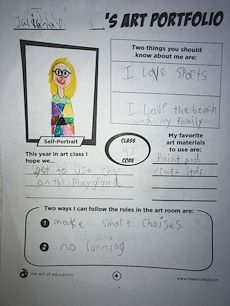 's ART PORTFOLIO
Two things you should
know about me are:
I love sports
I Love the beach
and my family
Self-Portrait
CLASS
CODE
My favorite
art materials
to use are:
Paint and
This year in art class I
hope we...
get to use
on the Playground
Two ways I can follow the rules in the art room are:
1 make smart choises
2 no running
the art of education
4